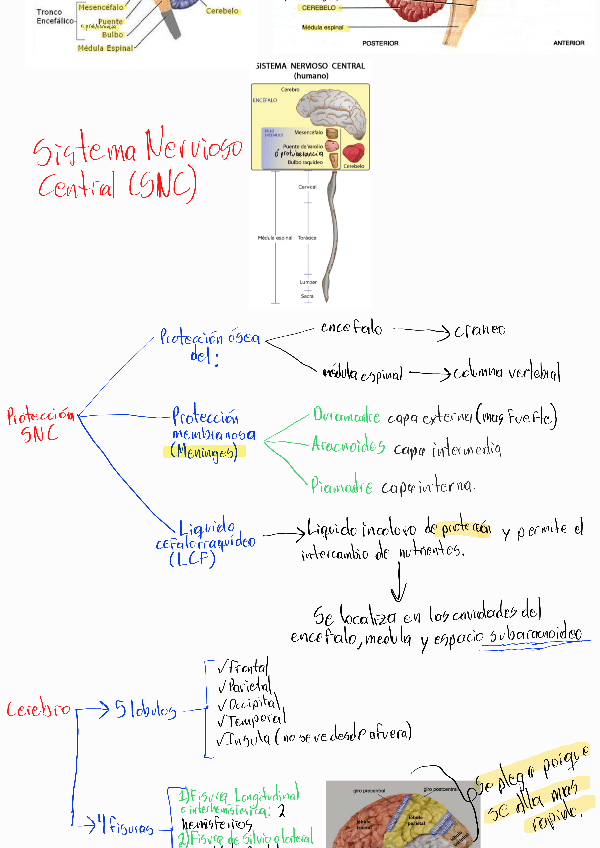 Mesencéfalo
Tronco
Encefálico
Puente
o protuberancia
Bulbo
Médula Espinal
Cerebelo
CEREBELO
Médula espinal
POSTERIOR
ANTERIOR
SISTEMA NERVIOSO CENTRAL
(humano)
Cerebro
ENCÉFALO
Mesencéfalo
Puente de Varolio
ó protuberancia
Bulbo raquídeo
Cerebelo
Cervical
Médula espinal
Torácica
Lumbar
Sacra
Sistema Nervioso
Central (SNC)
Protección
SNC
Protección ósea
del:
encefalo
craneo
médula espinal
columna vertebral
Protección
membranosa
(Meninges)
Duramadre capa externa (mas fuerte)
Aracnoides capa intermedia
Piamadre capa interna.
Liquido
cefalorraquídeo
(LCF)
Liquido incoloro de protección y permite el
intercambio de nutrientes.
Se localiza en las cavidades del
encefalo, medula y espacio subaracnoideo
Cerebro
5 lobulos
✓ Frontal
✓ Parietal
✓ Occipital
✓ Temporal
✓ Insula (no se ve desde afuera)
4 fisuras
1) Fisura Longitudinal
o interhemisferica: 2
hemisferios
2) Fisura de silvio o lateral
giro precentral
giro postcentral
lóbulo
frontal
lóbulo
parietal
Se plega porque
se alla mas
rapido.